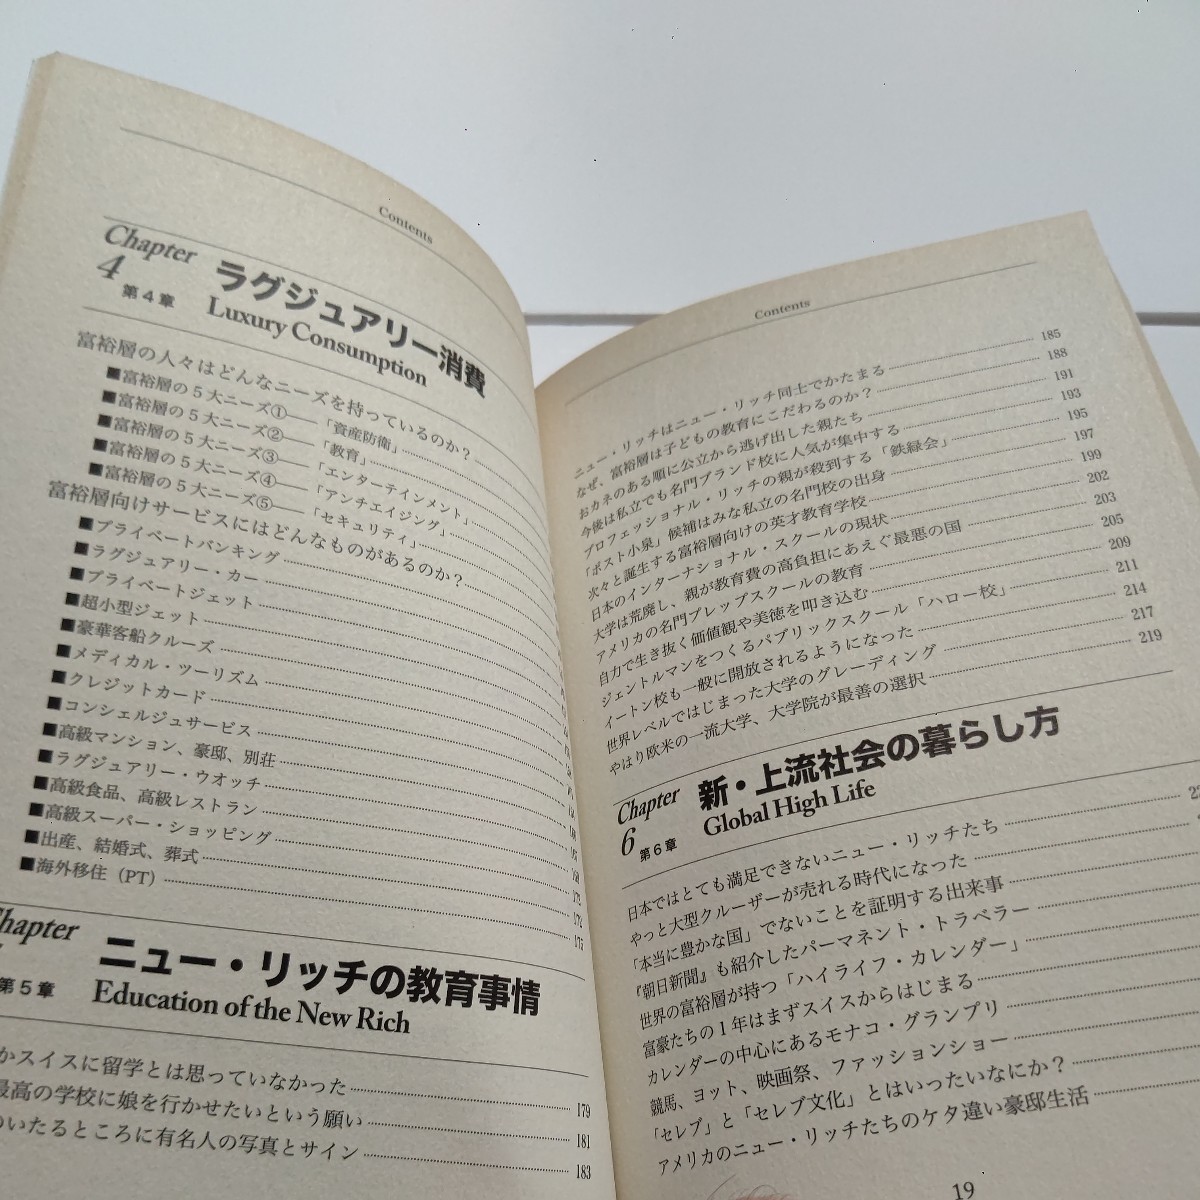 Contents
Chapter
4
第4章
ラグジュアリー消費
Luxury Consumption
富裕層の人々はどんなニーズを持っているのか?
■富裕層の5大ニーズ①――「資産防衛」
■富裕層の5大ニーズ②――「教育」
■富裕層の5大ニーズ③――「エンターテインメント」
■富裕層の5大ニーズ④――「アンチエイジング」
■富裕層の5大ニーズ⑤――「セキュリティ」
富裕層向けサービスにはどんなものがあるのか?
■プライベートバンキング
■ラグジュアリー・カー
■プライベートジェット
■超小型ジェット
■豪華客船クルーズ
■メディカル・ツーリズム
■クレジットカード
■コンシェルジュサービス
■高級マンション、豪邸、別荘
■ラグジュアリー・ウオッチ
■高級食品、高級レストラン
■高級スーパー・ショッピング
■出産、結婚式、葬式 172
■海外移住(PT) 175
Chapter
第5章
ニュー・リッチの教育事情
Education of the New Rich
かスイスに留学とは思っていなかった 179
最高の学校に娘を行かせたいという願い 181
いたるところに有名人の写真とサイン 183
Contents
ニュー・リッチはニュー・リッチ同士でかたまる 185
なぜ、富裕層は子どもの教育にこだわるのか? 188
おカネのある順に公立から逃げ出した親たち 191
今後は私立でも名門ブランド校に人気が集中する 193
プロフェッショナル・リッチの親が殺到する「鉄緑会」 195
「ポスト小泉」候補はみな私立の名門校の出身 197
次々と誕生する富裕層向けの英才教育学校 199
日本のインターナショナル・スクールの現状 202
大学は荒廃し、親が教育費の高負担にあえぐ最悪の国 203
アメリカの名門プレップスクールの教育 205
自力で生き抜く価値観や美徳を叩き込む 209
ジェントルマンをつくるパブリックスクール「ハロー校」 211
イートン校も一般に開放されるようになった 214
世界レベルではじまった大学のグレーディング 217
やはり欧米の一流大学、大学院が最善の選択 219
Chapter
6
第6章
新・上流社会の暮らし方
Global High Life
日本ではとても満足できないニュー・リッチたち
やっと大型クルーザーが売れる時代になった
「本当に豊かな国」でないことを証明する出来事
『朝日新聞』も紹介したパーマネント・トラベラー
世界の富裕層が持つ「ハイライフ・カレンダー」
富豪たちの1年はまずスイスからはじまる
カレンダーの中心にあるモナコ・グランプリ
競馬、ヨット、映画祭、ファッションショー
「セレブ」と「セレブ文化」とはいったいなにか?
アメリカのニュー・リッチたちのケタ違い豪邸生活
19